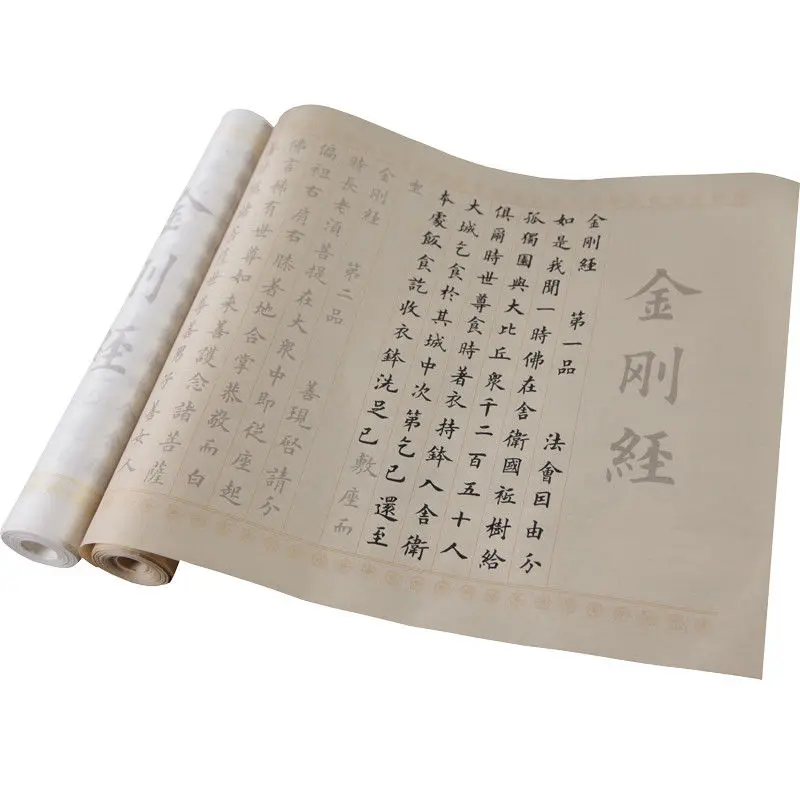 金剛經
金剛經 第一品 法會因由分
如是我聞一時佛在舍衛國祇樹給
孤獨園與大比丘衆千二百五十人
俱爾時世尊食時著衣持鉢入舍衛
大城乞食於其城中次第乞已還至
本處飯食訖收衣鉢洗足已敷座而
坐
金剛經 第二品 善現啓請分
時長老須菩提在大衆中即從座起
偏袒右肩右膝著地合掌恭敬而白
佛言希有世尊如來善護念諸菩薩
世尊善男子善女人
金剛經